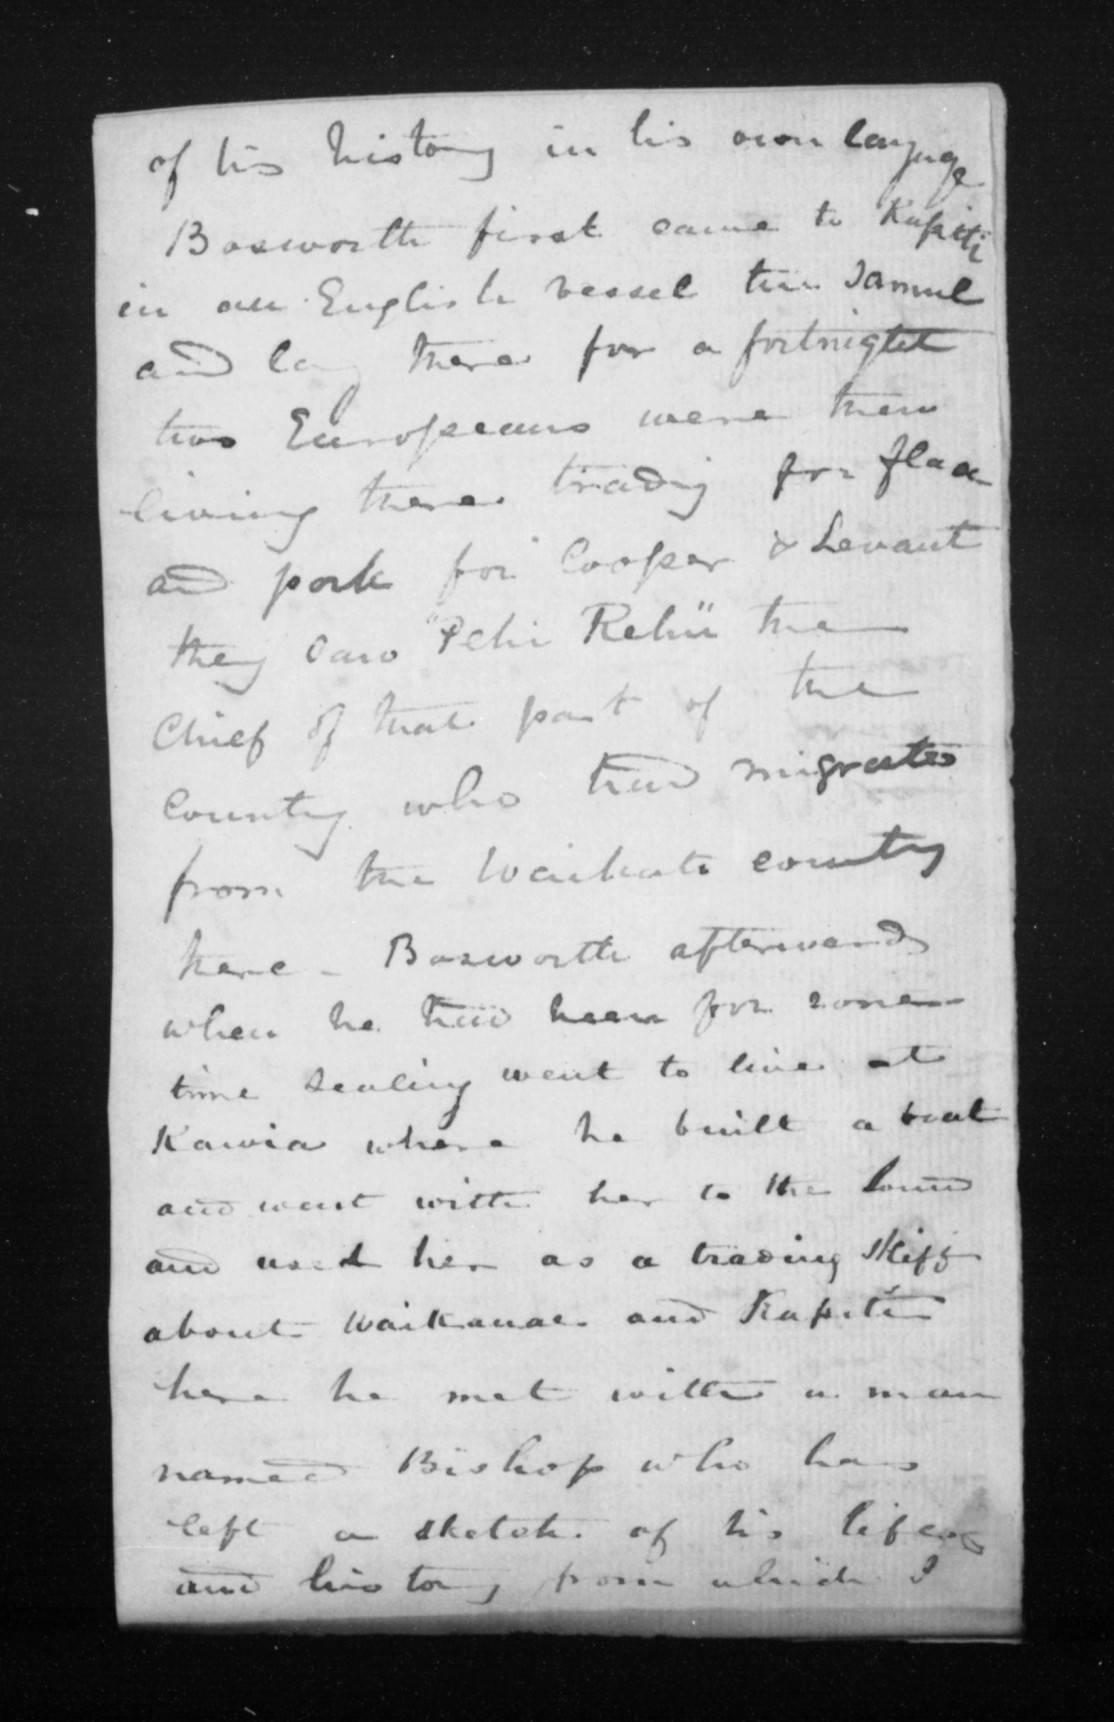 of his history in his own language
Bosworth first came to Kapiti
in an English vessel the Samuel
and lay there for a fortnight
two Europeans were then
living there trading for flax
and pork for Cooper & Levant
they saw "Pehi Rehu" the
Chief of that part of the
Country who had migrated
from the Waikato country
here - Bosworth afterwards
when he had been for some
time sealing went to live at
Kawia where he built a boat
and went with her to the Sound
and used her as a trading skiff
about Waikanae and Kapiti
here he met with a man
named Bishop who has
left a sketch of his life
and history from which I